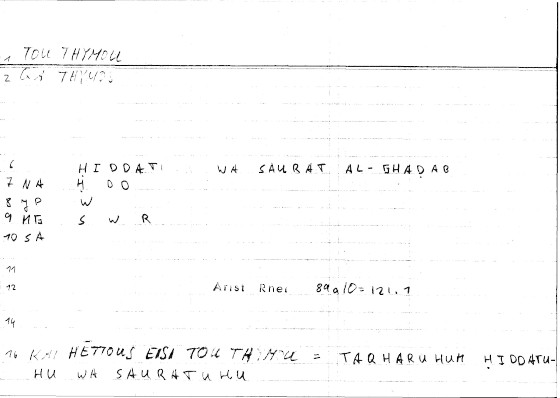 1 TOU THYMOU
2 Gr THYMOS
6 ḤIDDATI WA SAURAT AL-GHADAB
7 NA Ḥ D D
8 YP W
9 NG S W R
10 SA
11
12 Arist Rhet 89a10 = 121.1
14
16 KAI HĒTTOUS EISI TOU THYMU = TAQHARUHUM ḤIDDATU-
HU WA SAURATUHU